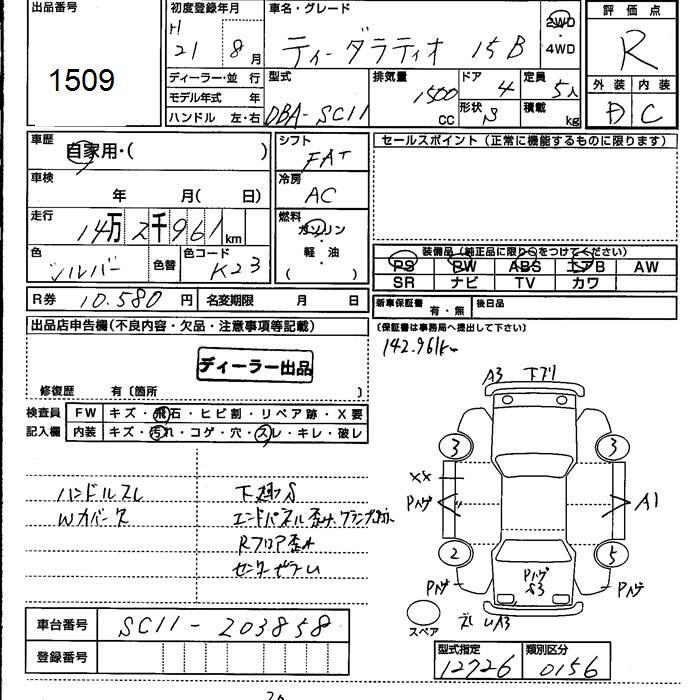 出品番号
1509
初度登録年月
H
21 8月
車名・グレード
ティーダラティオ 15B
2WD
・
4WD
評価点
R
ディーラー・並 行
モデル年式 年
ハンドル 左・右
型式
DBA-SC11
排気量
1500
CC
ドア
4
形状
S
定員
5人
積載
kg
外装 内装
D C
車歴
自家用・( )
車検
年 月( 日)
走行
14万2千961km
色
シルバー
色替
色コード
K23
シフト
FAT
冷房
AC
燃料
ガソリン
・
軽・油
( )
R券 10.580 円
名変期限 月 日
セールスポイント (正常に機能するものに限ります)
装備品 (純正品に限り○をつけてください)
PS PW ABS エアB AW
SR ナビ TV カワ
新車保証書 有・無
後日品
(保証書は事務局へ提出して下さい)
142.961km
出品店申告欄(不良内容・欠品・注意事項等記載)
ディーラー出品
修復歴 有〔箇所 〕
検査員
記入欄
FW キズ・飛石・ヒビ割・リペア跡・X要
内装 キズ・汚れ・コゲ・穴・スレ・キレ・破レ
ハンドルスレ
Wカバーケ
エンドパネル歪み
Rフロア歪み
A3 下ズリ
3 3
XX
Pハゲ
A1
2 5
Pハゲ
Pハゲ
S3
Pハゲ
スペア
ズレ A3
車台番号 SC11-203858
登録番号
型式指定
12726
類別区分
0156